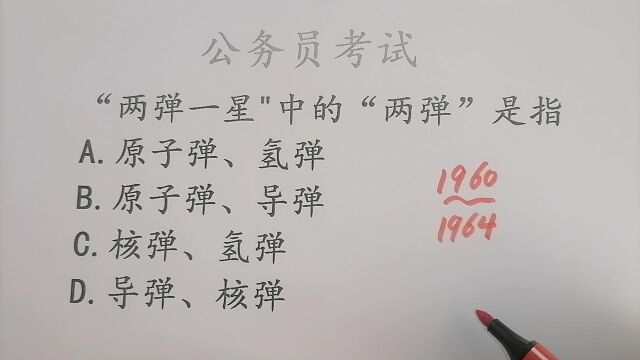 公务员考试
“两弹一星"中的“两弹”是指
A.原子弹、氢弹
B.原子弹、导弹
C.核弹、氢弹
D.导弹、核弹
1960
1964